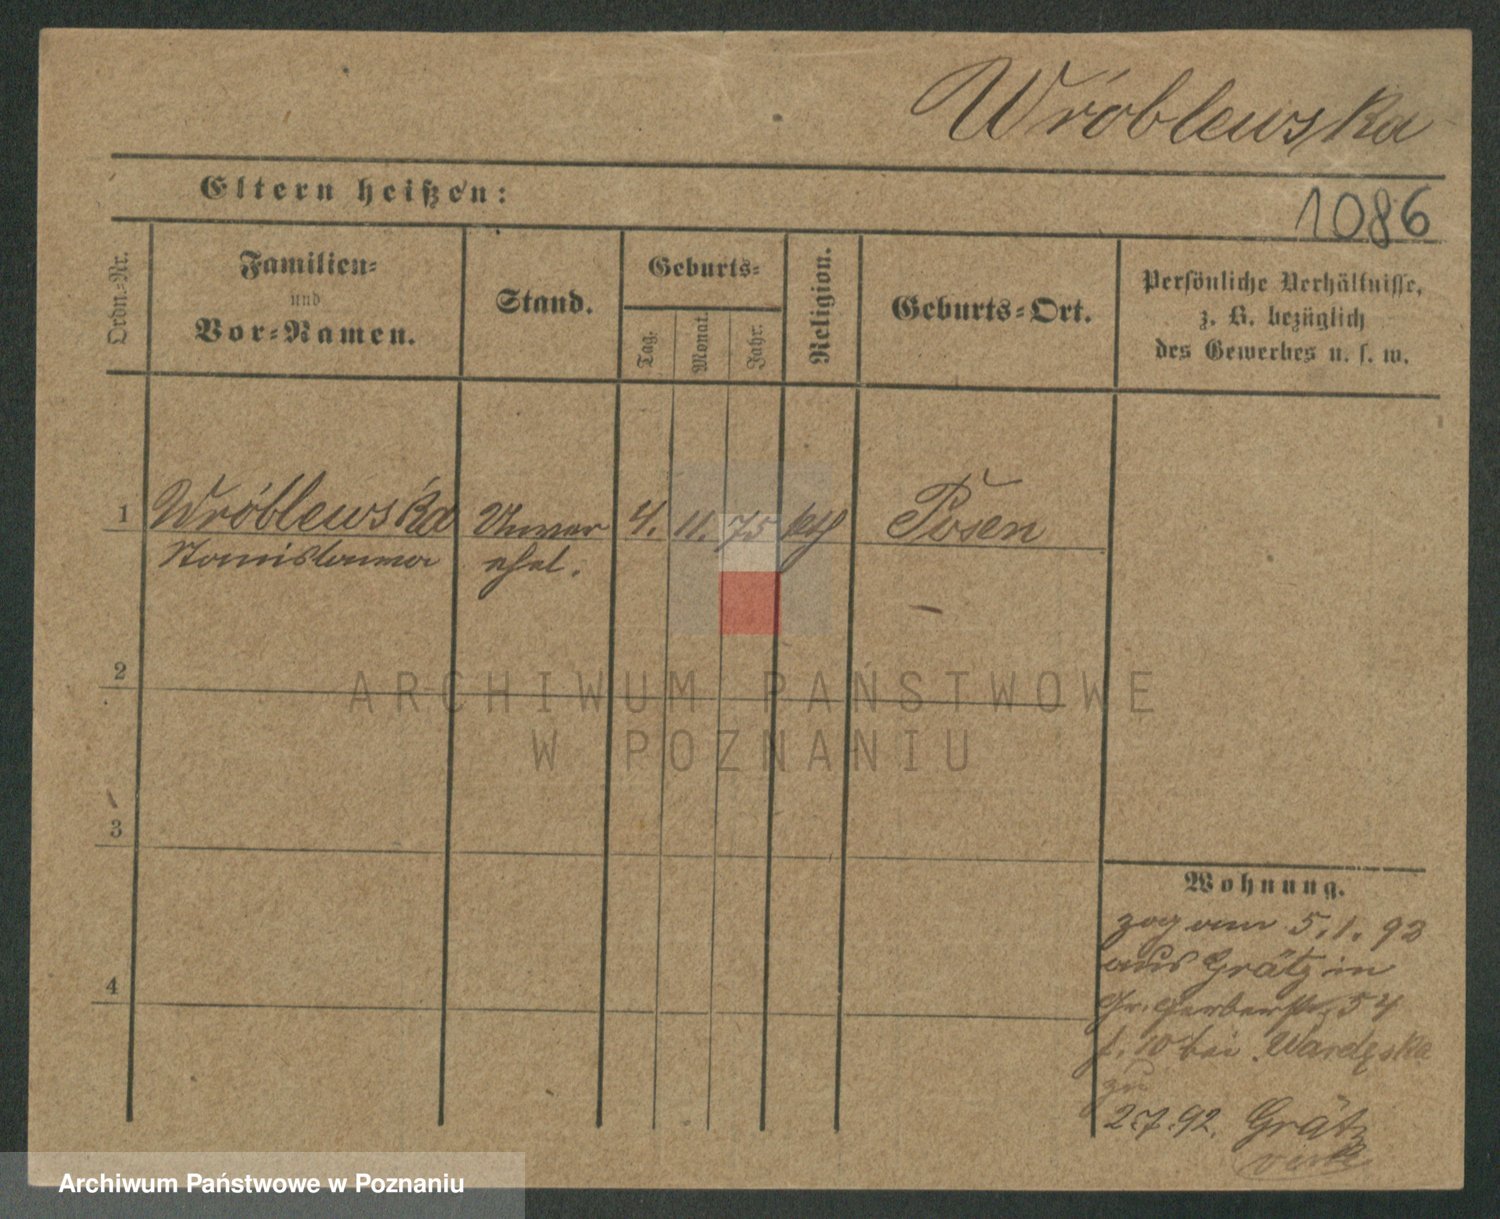 Wróblewska
Eltern heißen:
1086
Ordn.-Nr.
Familien-
und
Vor-Namen.
Stand.
Geburts-
Tag.
Monat.
Jahr.
Religion.
Geburts-Ort.
Persönliche Verhältnisse,
z. B. bezüglich
des Gewerbes u. s. w.
1 Wróblewska Unver 4. 11. 75 kth Posen
Stanislawa ehel.
2
ARCHIWUM PAŃSTWOWE
W POZNANIU
3
Wohnung.
zog am 5.1.92
aus Grätz in
4
Gr. Gerberstr. 54
f. 10 bei Wardęska
zu
2.7.92. Grätz
Archiwum Państwowe w Poznaniu